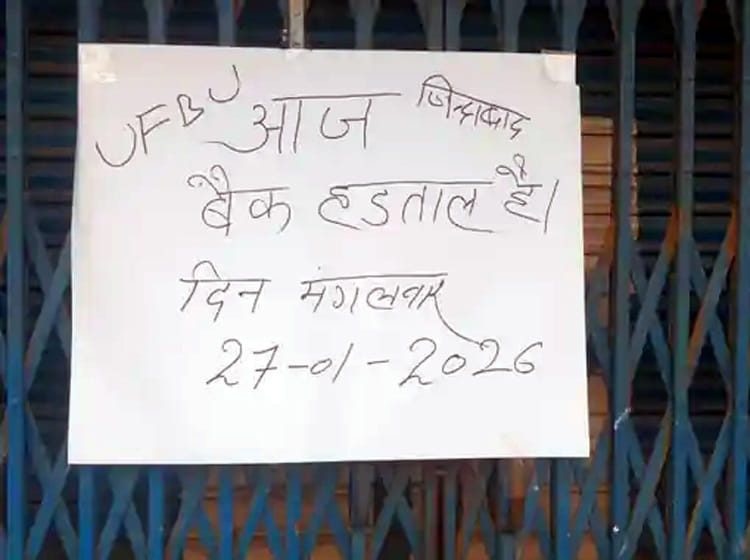 UFBU आज जिन्दाबाद
बैंक हडताल है।
दिन मंगलवार
27-01-2026